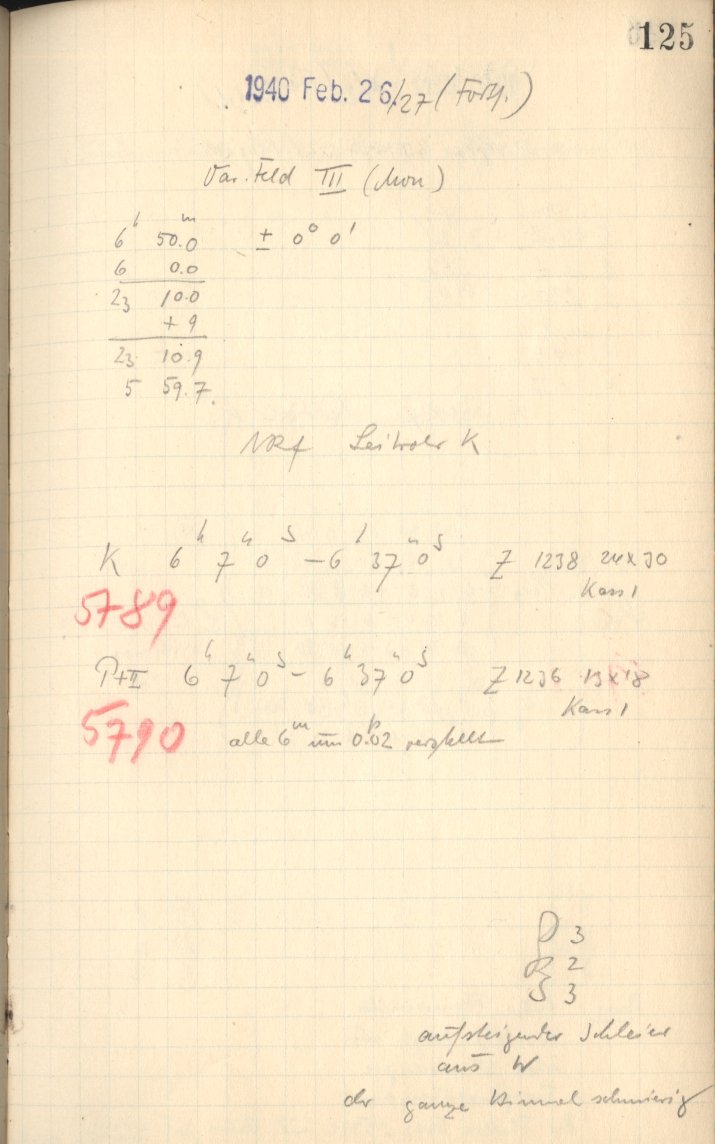 125
1940 Feb. 26/27 (Forts.)
Var. Feld III (Mon)
6ʰ 50.0ᵐ ± 0⁰ 0'
6 0.0
23 10.0
+ 9
23 10.9
5 59.7
Leitrohr K
K 6ʰ 7ᵐ 0ˢ – 6ʰ 37ᵐ 0ˢ Z 1238 24x30
Kass 1
5789
6ʰ 7ᵐ 0ˢ – 6ʰ 37ᵐ 0ˢ Z 1236 13x18
Kass 1
5790
alle 6ᵐ um 0ᵖ.02 verstellt
D 3
R 2
S 3
aufsteigender Schleier
aus W
der ganze Himmel schmierig